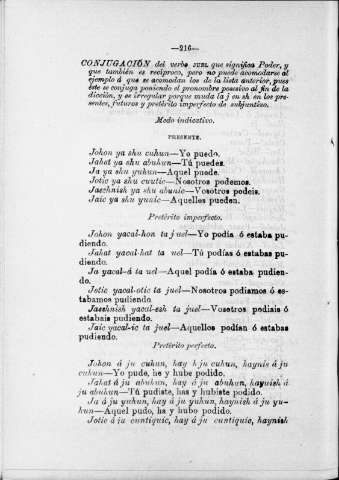 —216—
CONJUGACIÓN del verbo JUEL que significa Poder, y
que también es recíproco, pero no puede acomodarse al
ejemplo á que se acomodan los de la lista anterior, pues
éste se conjuga poniendo el pronombre posesivo al fin de la
dicción, y es irregular porque muda la j en sh en los pre-
sentes, futuros y pretérito imperfecto de subjuntivo.
Modo indicativo.
PRESENTE.
Johon ya shu cuhun—Yo puedo.
Jahat ya shu abuhun—Tú puedes.
Ja ya shu yuhun—Aquel puede.
Jotic ya shu cuutic—Nosotros podemos.
Jaschnish ya shu abunic—Vosotros podeis.
Jaic ya shu yunic—Aquellos pueden.
Pretérito imperfecto.
Johon yacal-hon ta juel—Yo podía ó estaba pu-
diendo.
Jahat yacal-hat ta uel—Tú podías ó estabas pu-
diendo.
Ja yacal-á ta uel—Aquel podía ó estaba pudien-
do.
Jotic yacal-otic ta juel—Nosotros podiamos ó es-
tabamos pudiendo
Jaschnish yacal-esh ta juel—Vosotros podiais ó
estabais pudiendo.
Jaic yacal-ic ta juel—Aquellos podían ó estabas
pudiendo.
Pretérito perfecto.
Johon á ju cuhun, hay h ju cuhun, haynis á ju
cuhun—Yo pude, he y hube podido.
Jahat á ju abuhun, hay á ju abuhun, haynish á
ju abuhun—Tú pudiste, has y hubiste podido.
Ja á ju yuhun, hay á ju yuhun, haynish á ju yu-
hun—Aquel pudo, ha y hubo podido.
Jotic á ju cuntiquic, hay á ju cuntiquic, haynish